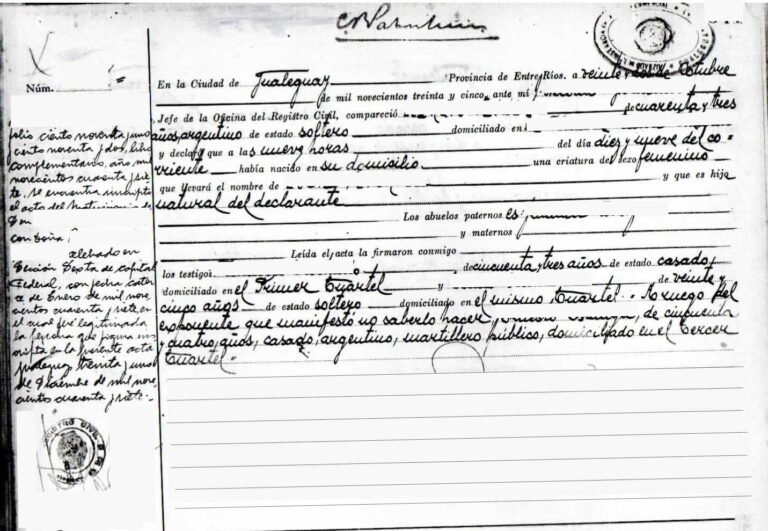 Núm.
En la Ciudad de Gualeguay Provincia de Entre Ríos, a veinte y dos de Octubre
de mil novecientos treinta y cinco, ante mí
Jefe de la Oficina del Registro Civil, compareció de cuarenta y tres
años, argentino de estado soltero domiciliado en
y declaró que a las nueve horas del día diez y nueve del co-
rriente había nacido en su domicilio una criatura del sexo femenino
que llevará el nombre de y que es hija
natural del declarante
Los abuelos paternos es
y maternos
Leída el acta la firmaron conmigo
los testigos de cincuenta y tres años de estado casado,
domiciliado en el Primer Cuartel y de veinte y
cinco años de estado soltero domiciliado en el mismo Cuartel. A ruego del
exponente que manifestó no saberlo hacer, de cincuenta
y cuatro años, casado, argentino, martillero público, domiciliado en el tercer
Cuartel.
folio ciento noventa y uno
ciento noventa y dos, libro
complementario, año mil
novecientos cuarenta y sie-
te, se encuentra inscripto
el acta del Matrimonio de
Don
con Doña
celebrado en
Sección Sexta de Capital
Federal, con fecha cator-
ce de Enero de mil nove-
cientos cuarenta y siete en
el cual fué legitimada
la persona que figura ins-
cripta en la presente acta
treinta y uno
de Diciembre de mil nove-
cientos cuarenta y siete.-